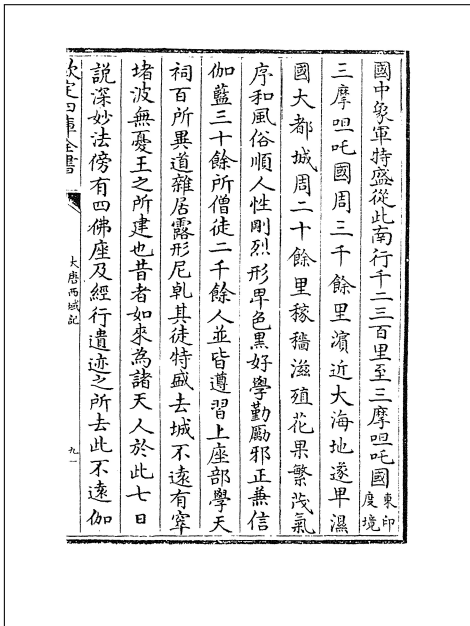 國中象軍特盛從此南行千二三百里至三摩呾吒國東印度境
三摩呾吒國周三千餘里濵近大海地遂卑濕
國大都城周二十餘里稼穡滋殖花果繁茂氣
序和風俗順人性剛烈形卑色黑好學勤勵邪正兼信
伽藍三十餘所僧徒二千餘人並皆遵習上座部學天
祠百所異道雜居露形尼乹其徒特盛去城不逺有窣
堵波無憂王之所建也昔者如來為諸天人於此七日
説深妙法傍有四佛座及經行遺迹之所去此不逺伽
欽定四庫全書
大唐西域記
九一